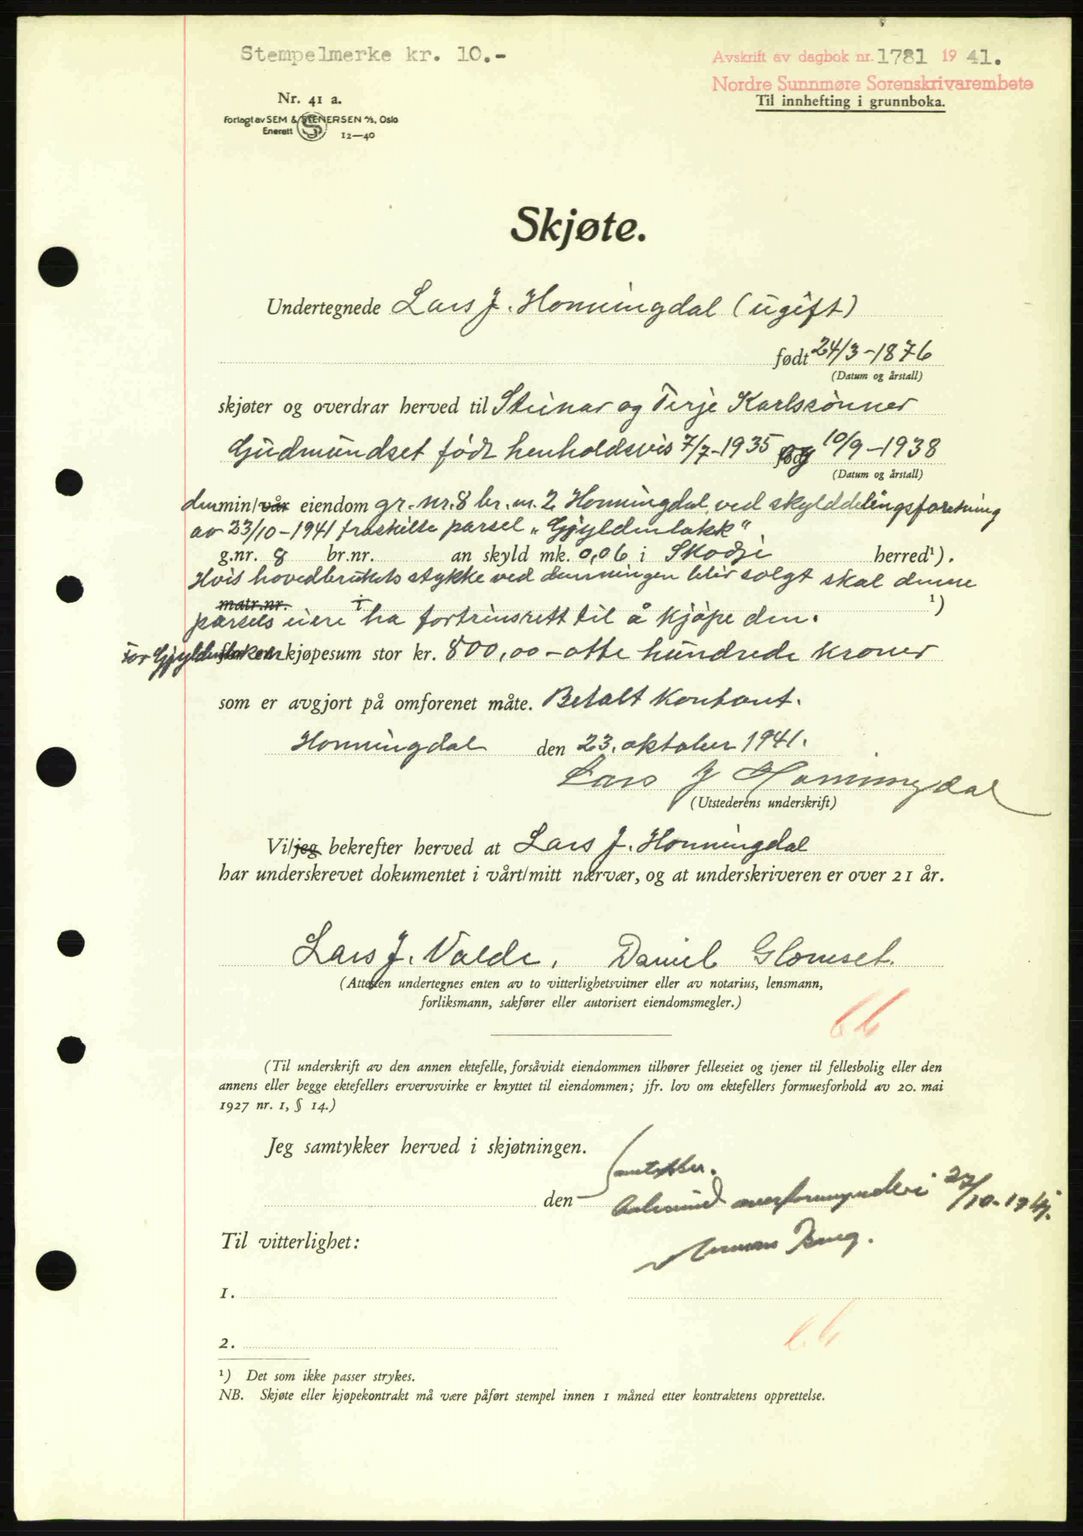 Stempelmerke kr. 10.-
Avskrift av dagbok nr. 1781 1941.
Nordre Sunnmøre Sorenskrivarembete
Til innhefting i grunnboka.
Nr. 41 a.
Forlagt av SEM & STENERSEN A/S, Oslo
Enerett S 12—40
Skjøte.
Undertegnede Lars J. Honningdal (ugift)
født 24/3-1876
(Datum og årstall)
skjøter og overdrar herved til Steinar og Terje Karlssønner
Gudmundset født henholdsvis 7/7-1935 og 10/9-1938
(Datum og årstall)
den min/vår eiendom gr. nr. 8 br. nr. 2 Honningdal, ved skylddelingsforretning
av 23/10-1941 fraskilte parsel "Gjyldenlakk"
g.nr. 8 br.nr. an skyld mk. 0,06 i Skodje herred¹).
Hvis hovedbrukets stykke ved demningen blir solgt skal denne
matr.nr. i ¹)
parsels eiere ha fortrinsrett til å kjøpe den.
for Gjyldenlakk en kjøpesum stor kr. 800,00 - otte hundrede kroner
som er avgjort på omforenet måte. Betalt kontant.
Honningdal den 23. oktober 1941.
Lars J Honningdal
(Utstederens underskrift)
Vi/jeg bekrefter herved at Lars J. Honningdal
har underskrevet dokumentet i vårt/mitt nærvær, og at underskriveren er over 21 år.
Lars J. Valde, Daniel Glomset.
(Attesten undertegnes enten av to vitterlighetsvitner eller av notarius, lensmann,
forliksmann, sakfører eller autorisert eiendomsmegler.)
(Til underskrift av den annen ektefelle, forsåvidt eiendommen tilhører felleseiet og tjener til fellesbolig eller den
annens eller begge ektefellers ervervsvirke er knyttet til eiendommen; jfr. lov om ektefellers formuesforhold av 20. mai
1927 nr. 1, § 14.)
Jeg samtykker herved i skjøtningen.
Samtykker.
den overformynderi 27/10-1941.
Til vitterlighet:
1.
2.
¹) Det som ikke passer strykes.
NB. Skjøte eller kjøpekontrakt må være påført stempel innen 1 måned etter kontraktens opprettelse.